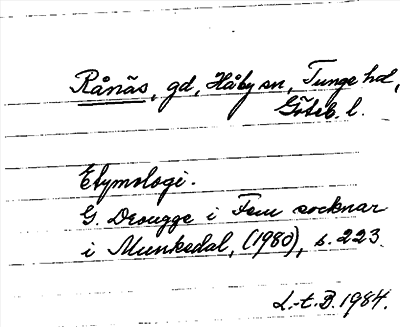 Rånäs, gd, Håby sn, Tunge hd,
Göteb. l.
Etymologi.
G. Drougge i Fem socknar
i Munkedal, (1980), s. 223.
L.-E. B. 1984.